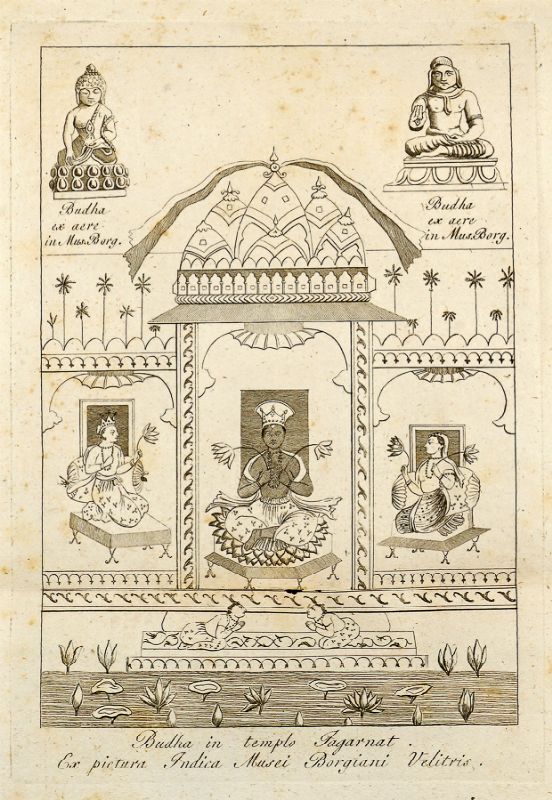 Budha
ex aere
in Mus. Borg.
Budha
ex aere
in Mus. Borg.
Budha in templo Jagarnat.
Ex pictura Indica Musei Borgiani Velitris.